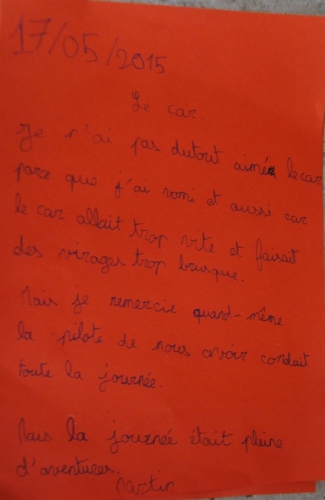 17/05/2015
Le car
Je n'ai pas dutout aimée le car
parce que j'ai vomi et aussi car
le car allait trop vite et faisait
des virages trop brusque.
Mais je remercie quand-même
la pilote de nous avoir conduit
toute la journée.
Mais la journée était pleine
d'aventures.
Martin